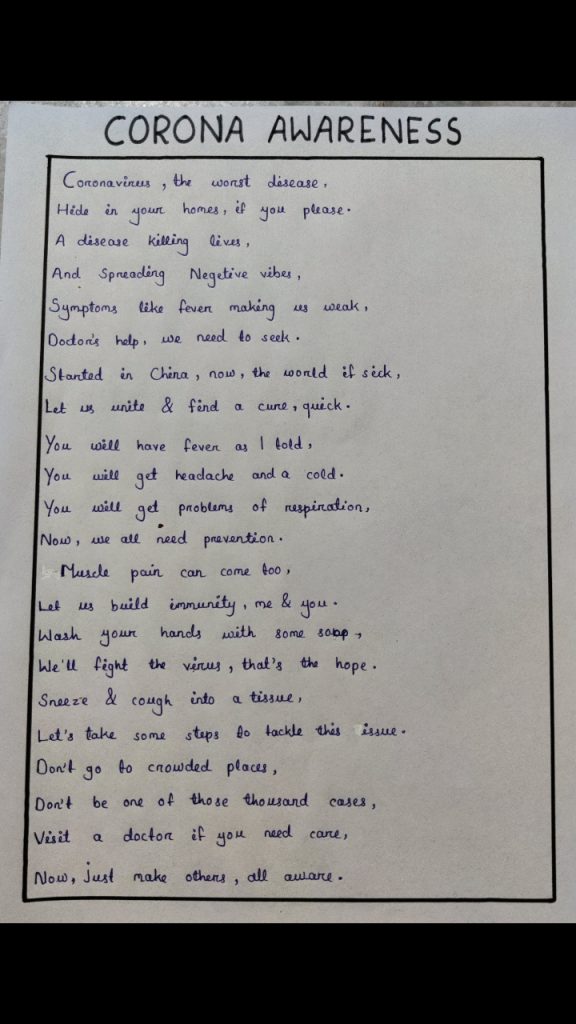 CORONA AWARENESS
Coronavirus, the worst disease,
Hide in your homes, if you please.
A disease killing lives,
And Spreading Negetive vibes,
Symptoms like fever making us weak,
Doctor's help, we need to seek.
Started in China, now, the world if sick,
Let us unite & find a cure, quick.
You will have fever as I told,
You will get headache and a cold.
You will get problems of respiration,
Now, we all need prevention.
Muscle pain can come too,
Let us build immunity, me & you.
Wash your hands with some soap,
We'll fight the virus, that's the hope.
Sneeze & cough into a tissue,
Let's take some steps to tackle this issue.
Don't go to crowded places,
Don't be one of those thousand cases,
Visit a doctor if you need care,
Now, just make others, all aware.